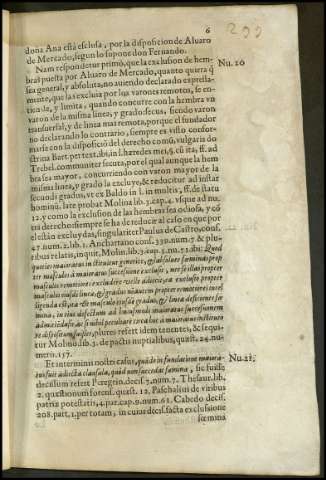 6
299
doña Ana està esclusa, por la disposicion de Aluaro
de Mercado, segun lo supone don Fernando.
Nam respondetur primò, que la exclusion de hem-
bras puesta por Aluaro de Mercado, quanto quirra q̃
sea general, y absoluta, no auiendo declarado expressa-
mente, que las excluia por los varones remotos, se en-
tiende, y limita, quando concurre con la hembra vn
varon de la misma linea, y grado: secus, siendo varon
transuersal, y de linea mas remota, porque el fundador
no declarando lo contrario, siempre es visto confor-
marse con la disposicion del derecho comũ, vulgaris do
ctrina Bart. per text. ibi, in l. hæredes mei, §. cũ ita, ff. ad
Trebel. communiter secuta, por el qual aunque la hem
bra sea mayor, concurriendo con varon de la
misma linea, y grado la excluye, & reducitur ad instar
secundi gradus, vt ex Baldo in l. in multis, ff. de statu
hominũ, late probat Molina lib. 3. cap. 4. vsque ad nu.
12. y como la exclusion de las hembras sea odiosa, y cõ
tra derecho siempre se ha de reducir al caso en que por
el estàn excluydas, singulariter Paulus de Castro, cons.
47. num. 2. lib. 1. Ancharrano cons. 339. num. 7. & plu-
ribus relatis, inquit, Molin. lib. 3. cap. 5. nu. 51. ibi: Quod
quoties maioratus in stituitur generice, & absolute fæminis prop
ter masculos à maioratus successione exclusis, nec facilio propter
masculos remotiores excludere velle adiecta, ea exclusio propter
masculos eiusdẽ lineæ, & gradus nõ autem propter remotiores intel
ligenda est, ita vt si masculo eiusdẽ gradus, & lineæ deficiente fæ
mina, in eius defectum ad huiusmodi maioratus successionem
admittẽda sit, ac si nihil peculiare circa hoc à maioratus institutore
dispositum fuisset, plures refert idem tenentes, & sequi-
tur Molino lib. 3. de pactis nuptialibus, quæst. 24. nu-
mero. 157.
Et in terminis nostri casus, quãdo in fundatione maiora-
tus fuit adiecta clausula, quòd non succedat fæmina, sic fuisse
decisum refert Peregrin. decis. 7. num. 7. Thesaur. lib.
2. quæstionum forens. quæst. 12. Paschalius de viribus
patria potestatis, 4. par. cap. 9. num. 61. Cabedo decis.
208. part. 1. per totam, in cuius decis. facta exclusione
fœmina
Nu. 20
Nu. 21.